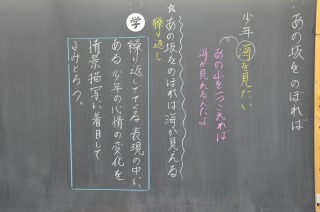 あの坂をのぼれば
少年 海を見たい
あの山を一つこえれば
海が見えるんだよ
☆あの坂をのぼれば海が見える
繰り返し
学
繰り返しでてくる表現の中に
ある少年の心情の変化を
情景描写に着目して
よみとろう。